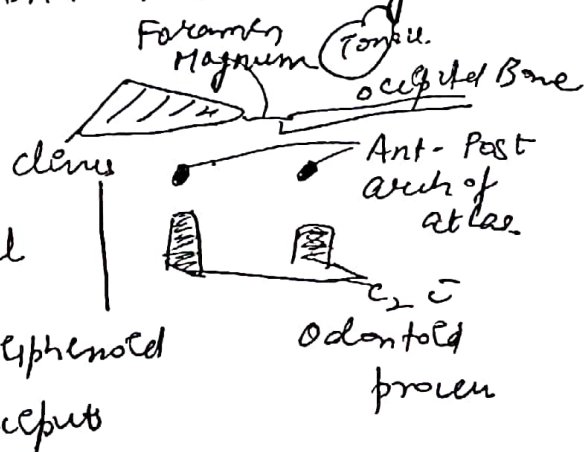 Foramen
Magnum
Tonsil.
occipital Bone
clivus
Ant - Post
arch of
atlas.
C2 c̄
Odontoid
process
sphenoid